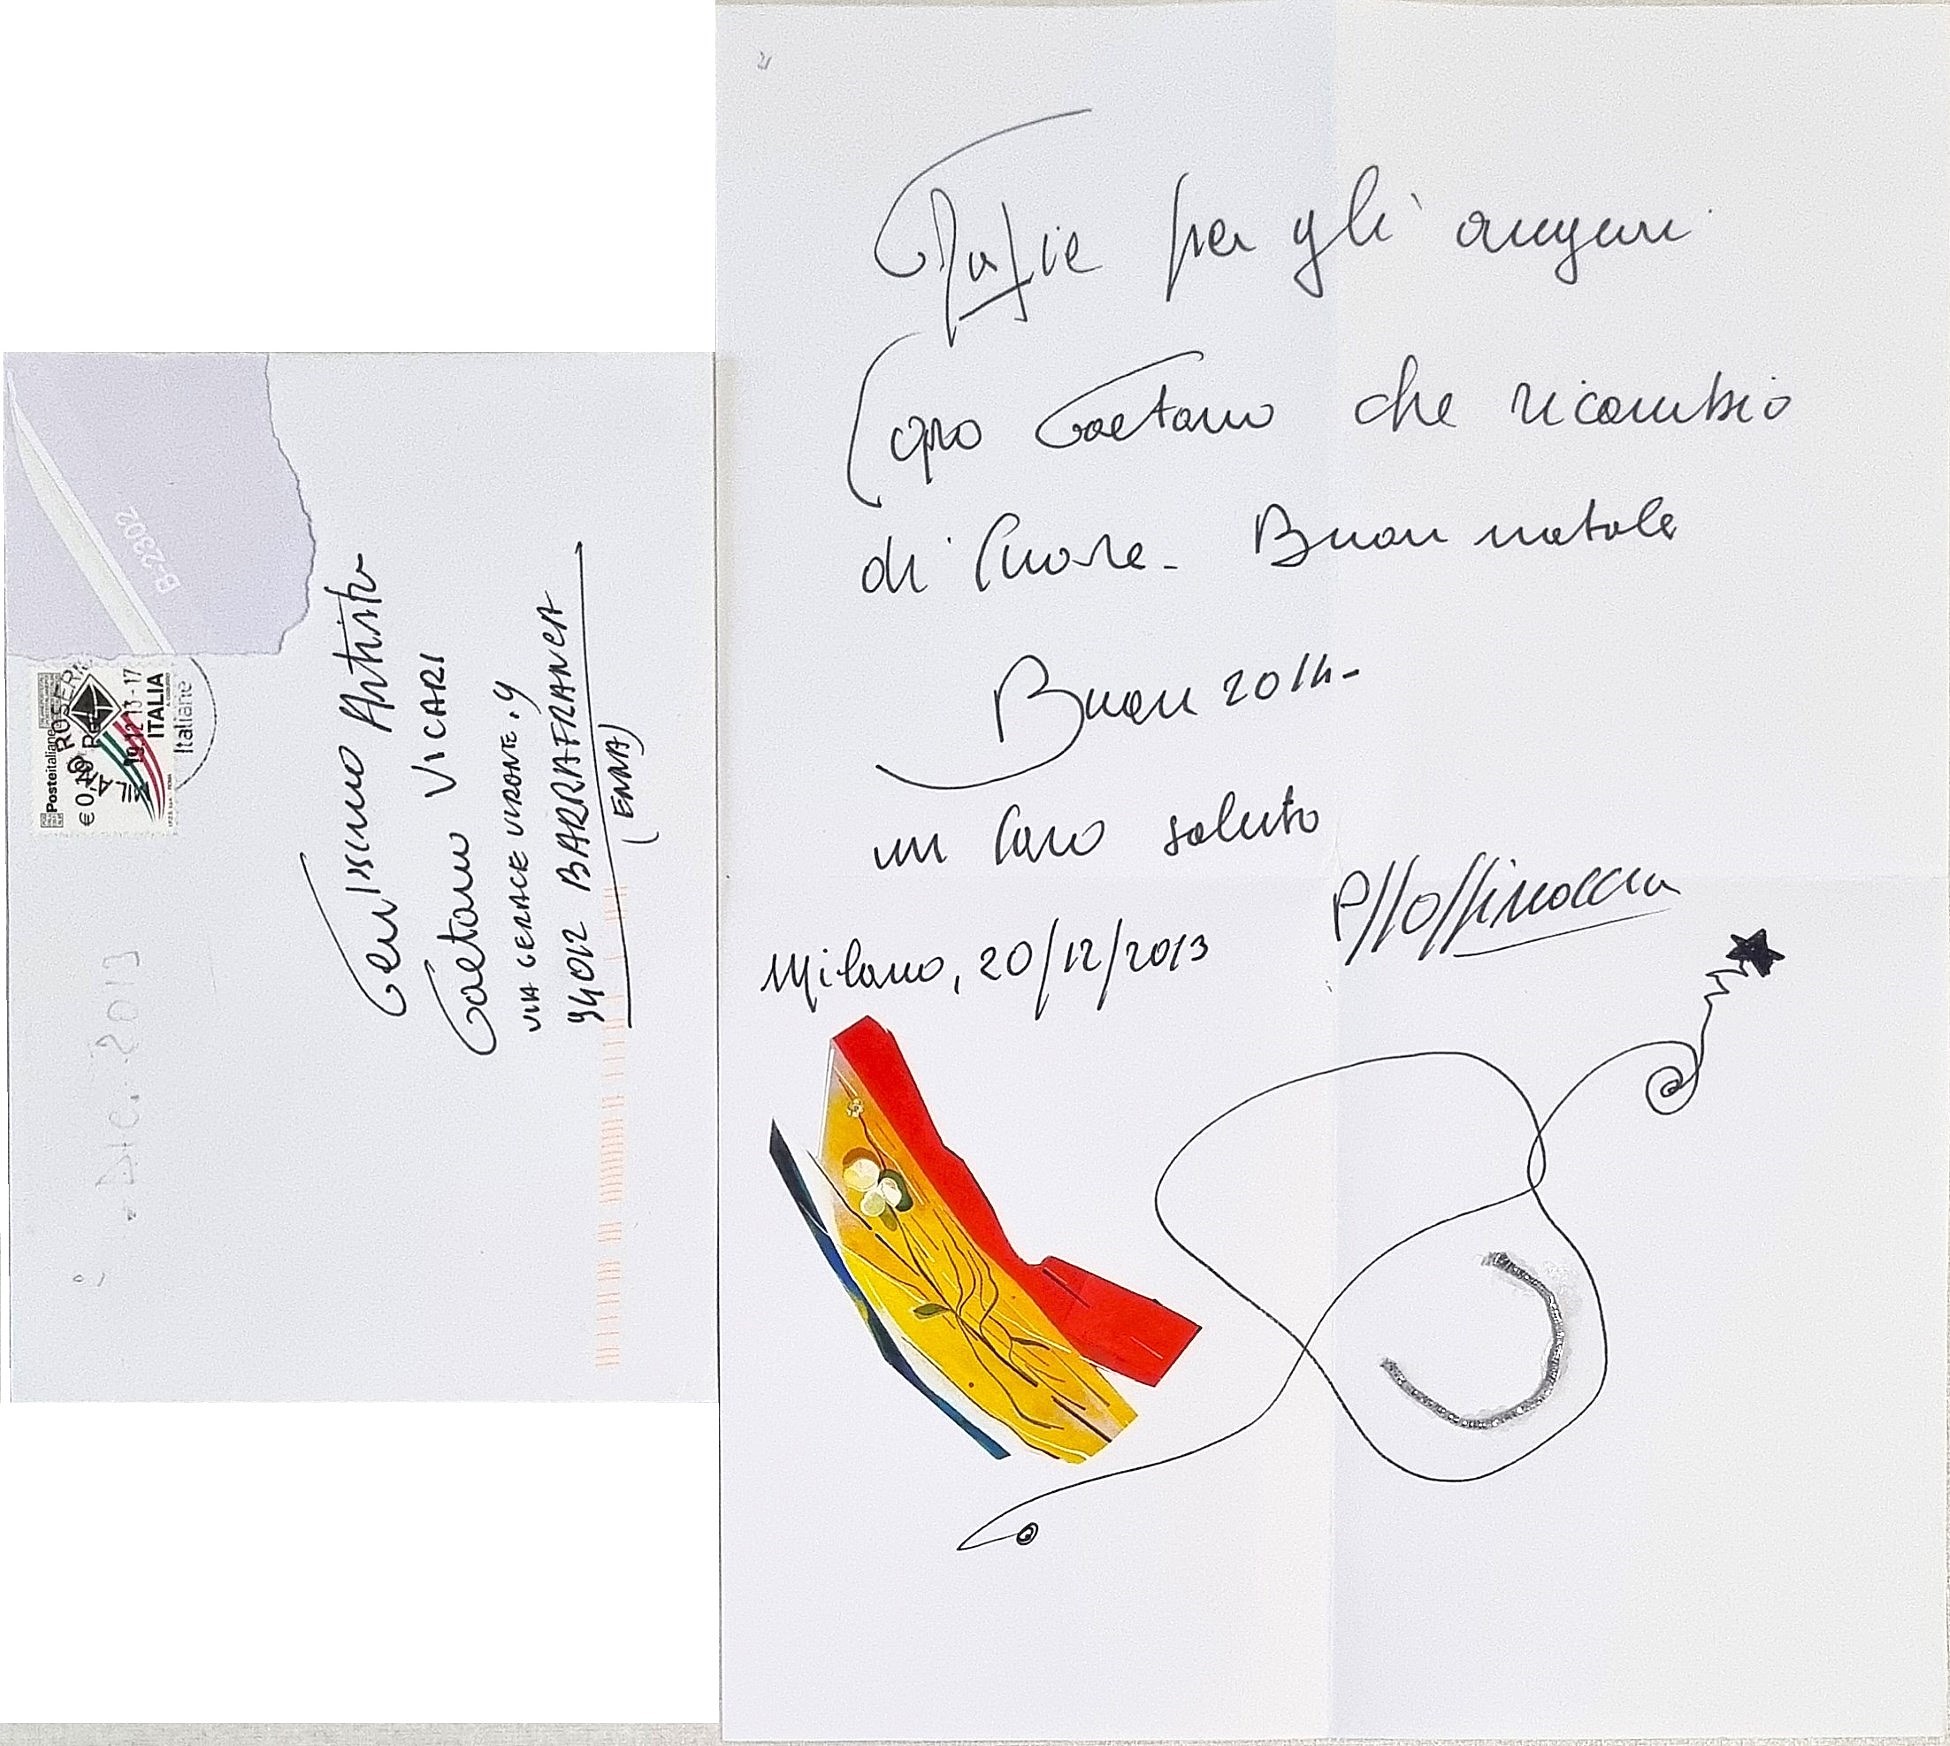 B-2302
Posteitaliane
€0,70
ITALIA
19.12.13-17
Italiane
Gen/ssimo Artista
Gaetano VICARI
VIA GERACE VIRONE.9
94012 BARRAFRANCA
(ENNA)
DIC. 2013
Grazie per gli auguri
Caro Gaetano che ricambio
di Cuore - Buon natale
Buon 2014-
un Caro saluto
Milano, 20/12/2013